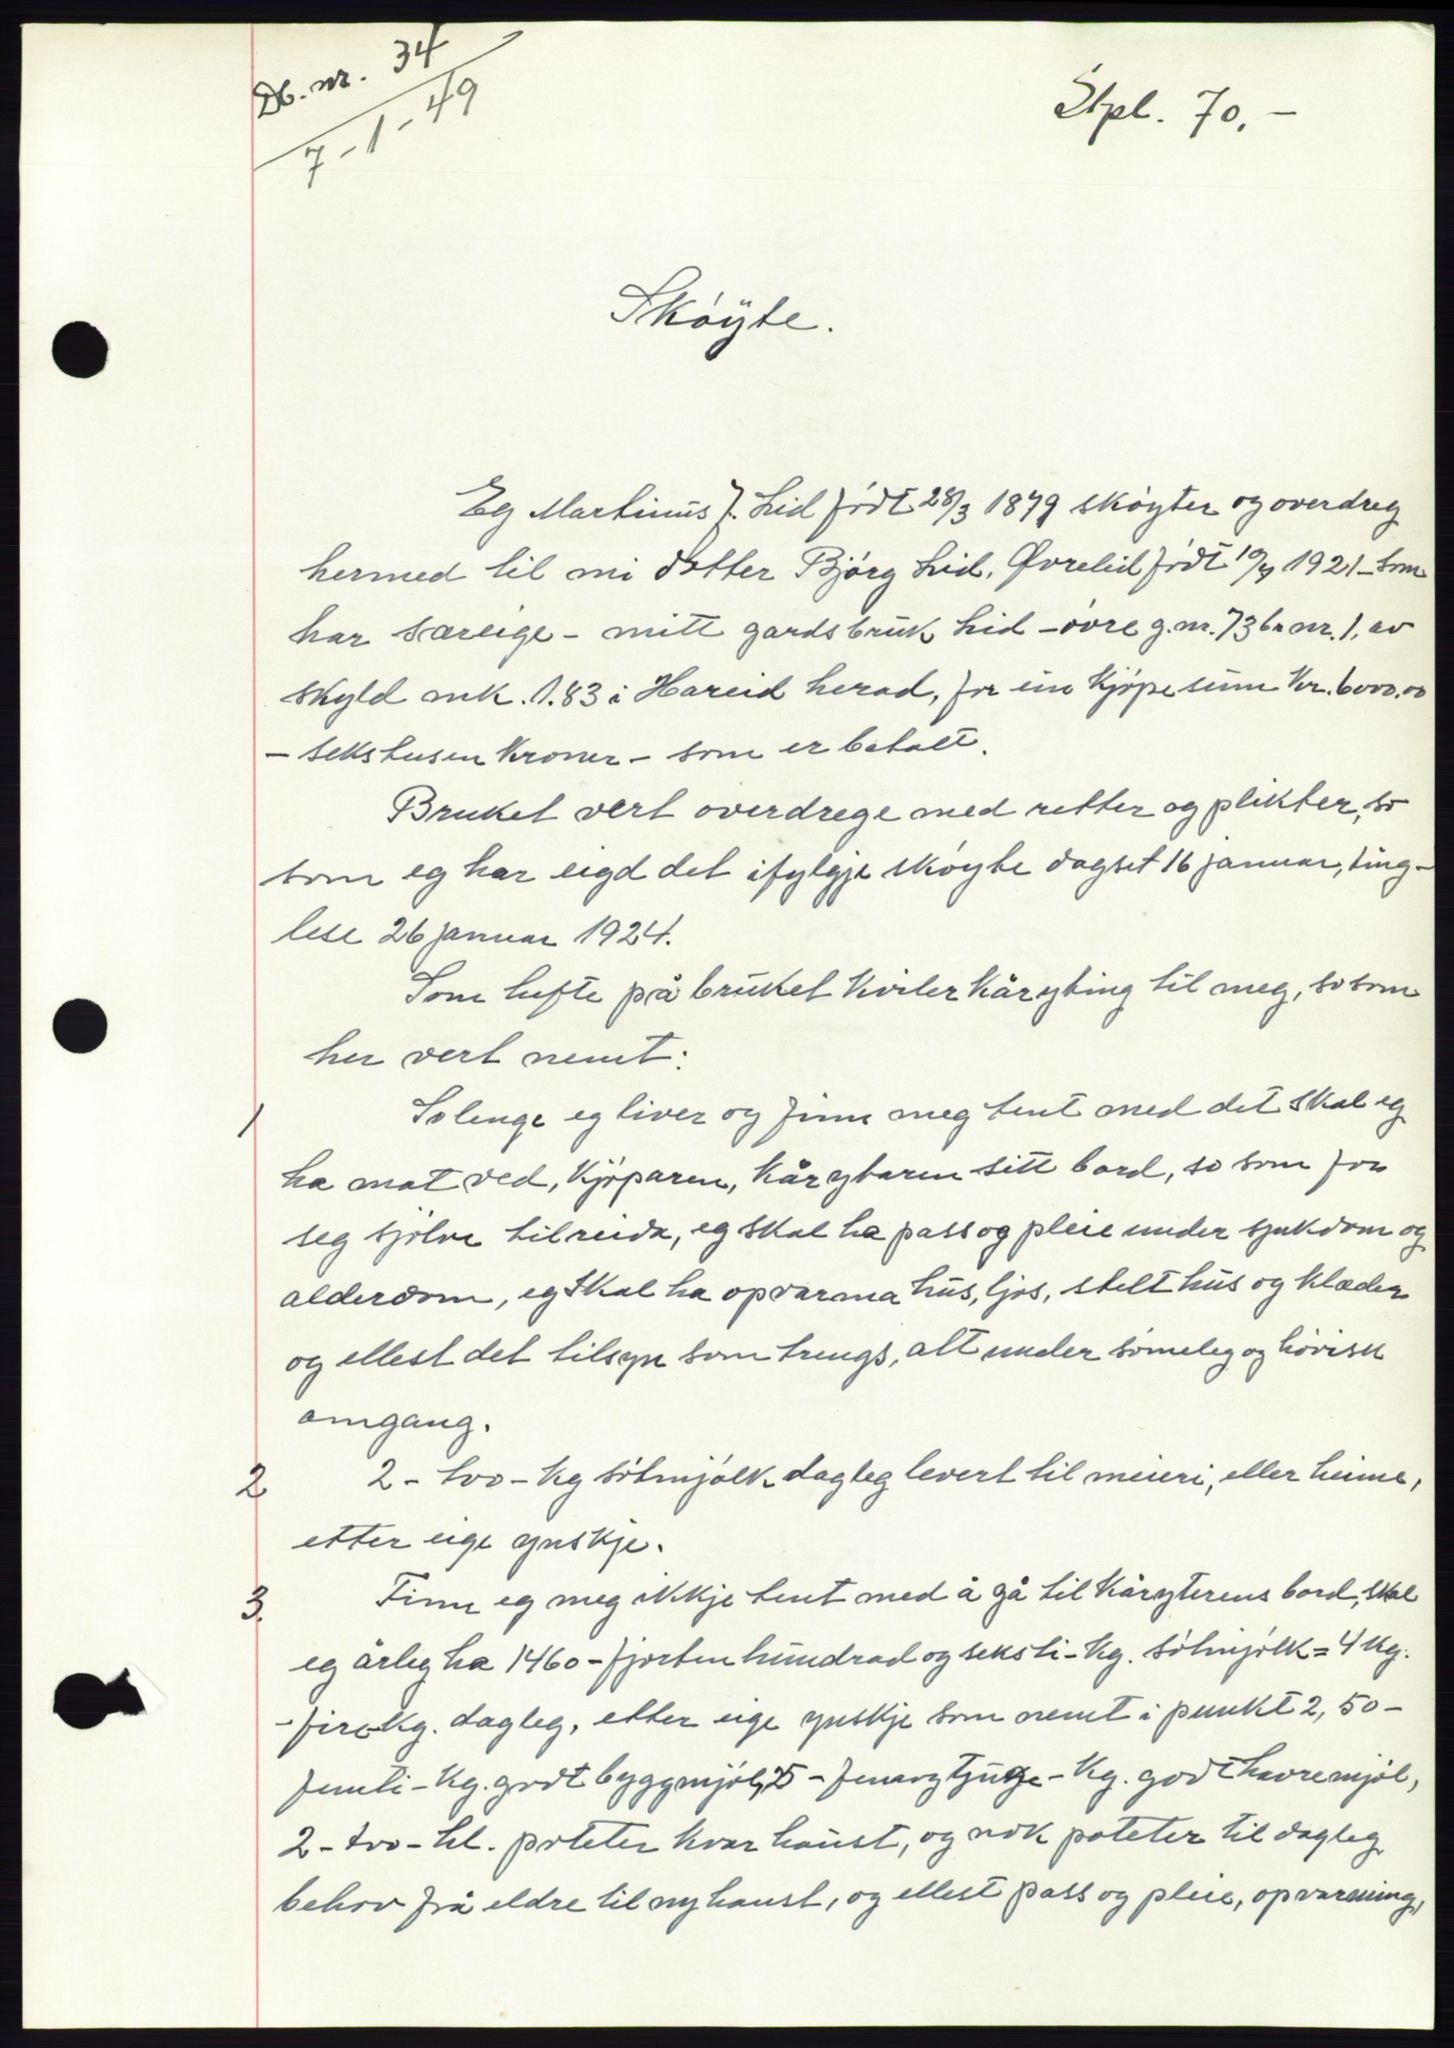 Db. nr. 34
7-1-49
Stpl. 70.-
Skøyte.
Eg Martinus J. Lid født 28/3 1879 skøyter og overdreg
hermed til mi dotter Bjørg Lid, Øvrelid født 10/4 1921 - som
har særeige - mitt gardsbruk Lid - øvre g.nr. 73 br nr. 1, av
skyld mk. 1.83 i Hareid herad, for ein kjøpesum kr. 6000.00
- sekstusen kroner - som er betalt.
Bruket vert overdrege med retter og plikter, so
som eg har eigd det ifylgje skøyte dagset 16 januar, ting-
lese 26 januar 1924.
Som hefte på bruket kviler kåryting til meg, so som
her vert nemt:
1 So lenge eg liver og finn meg tent med det skal eg
ha mat ved, kjøparen, kårytaren sitt bord, so som for
seg sjølve tilreida, eg skal ha pass og pleie under sjukdom og
alderdom, eg skal ha opvarma hus, ljos, stelt hus og klæder
og ellest det tilsyn som trengs, alt under sømeleg og høvisk
omgang.
2 2 - two - kg sötmjølk dagleg levert til meieri, eller heime,
etter eige ynskje.
3. Finn eg meg ikkje tent med å gå til kåryterens bord, skal
eg årleg ha 1460 - fjorten hundrad og seksti - kg. sötmjølk = 4 kg.
- fire kg. dagleg, etter eige ynskje som nemt i punkt 2, 50 -
femti - kg. godt byggmjøl, 25 - fem og tjuge - kg. godt havremjøl,
2 - two - hl. poteter kvar haust, og nok poteter til dagleg
behov frå eldre til ny haust, og ellest pass og pleie, opvarming,